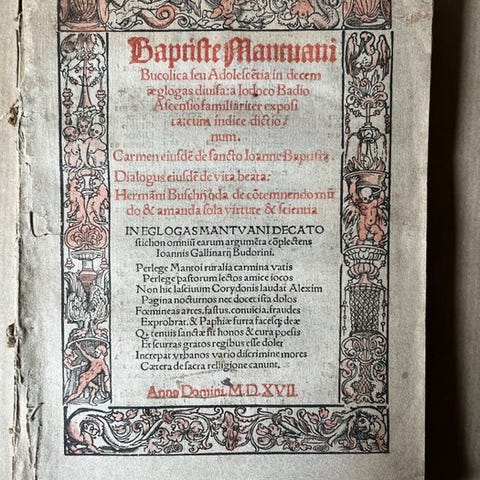 Baptiste Mantuani
Bucolica seu Adolescētia in decem
æglogas diuisa: a Iodoco Badio
Ascensio familiariter exposi
ta: cum indice dictio
num.
Carmen eiusdē de sancto Ioanne Baptista.
Dialogus eiusdē de vita beata:
Hermāni Buschij oda de cōtemnendo mū
do & amanda sola virtute & scientia
IN EGLOGAS MANTVANI DECATO
stichon omniū earum argumēta cōplectens
Ioannis Gallinarij Budorini.
Perlege Mantoi ruralia carmina vatis
Perlege pastorum lectos amice iocos
Non hic lasciuum Corydonis laudat Alexim
Pagina nocturnos nec docet ista dolos
Fœmineas artes, fastus, conuicia, fraudes
Exprobrat, & Paphiæ furta facesq; deæ
Q̄ tenuis sanctæ sit honos & cura poesis
Et scurras gratos regibus esse dolet
Increpat vrbanos vario discrimine mores
Cætera de sacra relligione canunt.
Anno Domini. M.D.XVII.